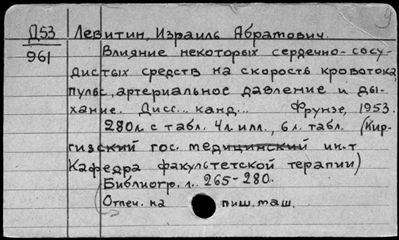 Д53 Левитин, Израиль Абрамович.
961 Влияние некоторых сердечно-сосу-
дистых средств на скорость кровотока,
пульс, артериальное давление и ды-
хание. Дисс... канд... Фрунзе, 1953.
280л. с табл. 4л. илл., 6л. табл. (Кир-
гизский гос. медицинский ин-т
Кафедра факультетской терапии)
Библиогр. л. 265-280.
Отпеч. на пиш. маш.